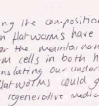 ing the composition
n flatworms have
or the maintenanc
m cells in both h
nslating our under
flatworms could p
regenerative medic